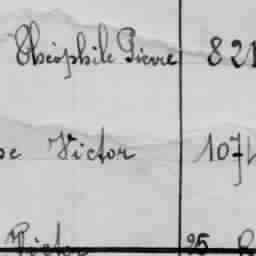 Théophile Pierre 821
se Victor 107
Victor 25